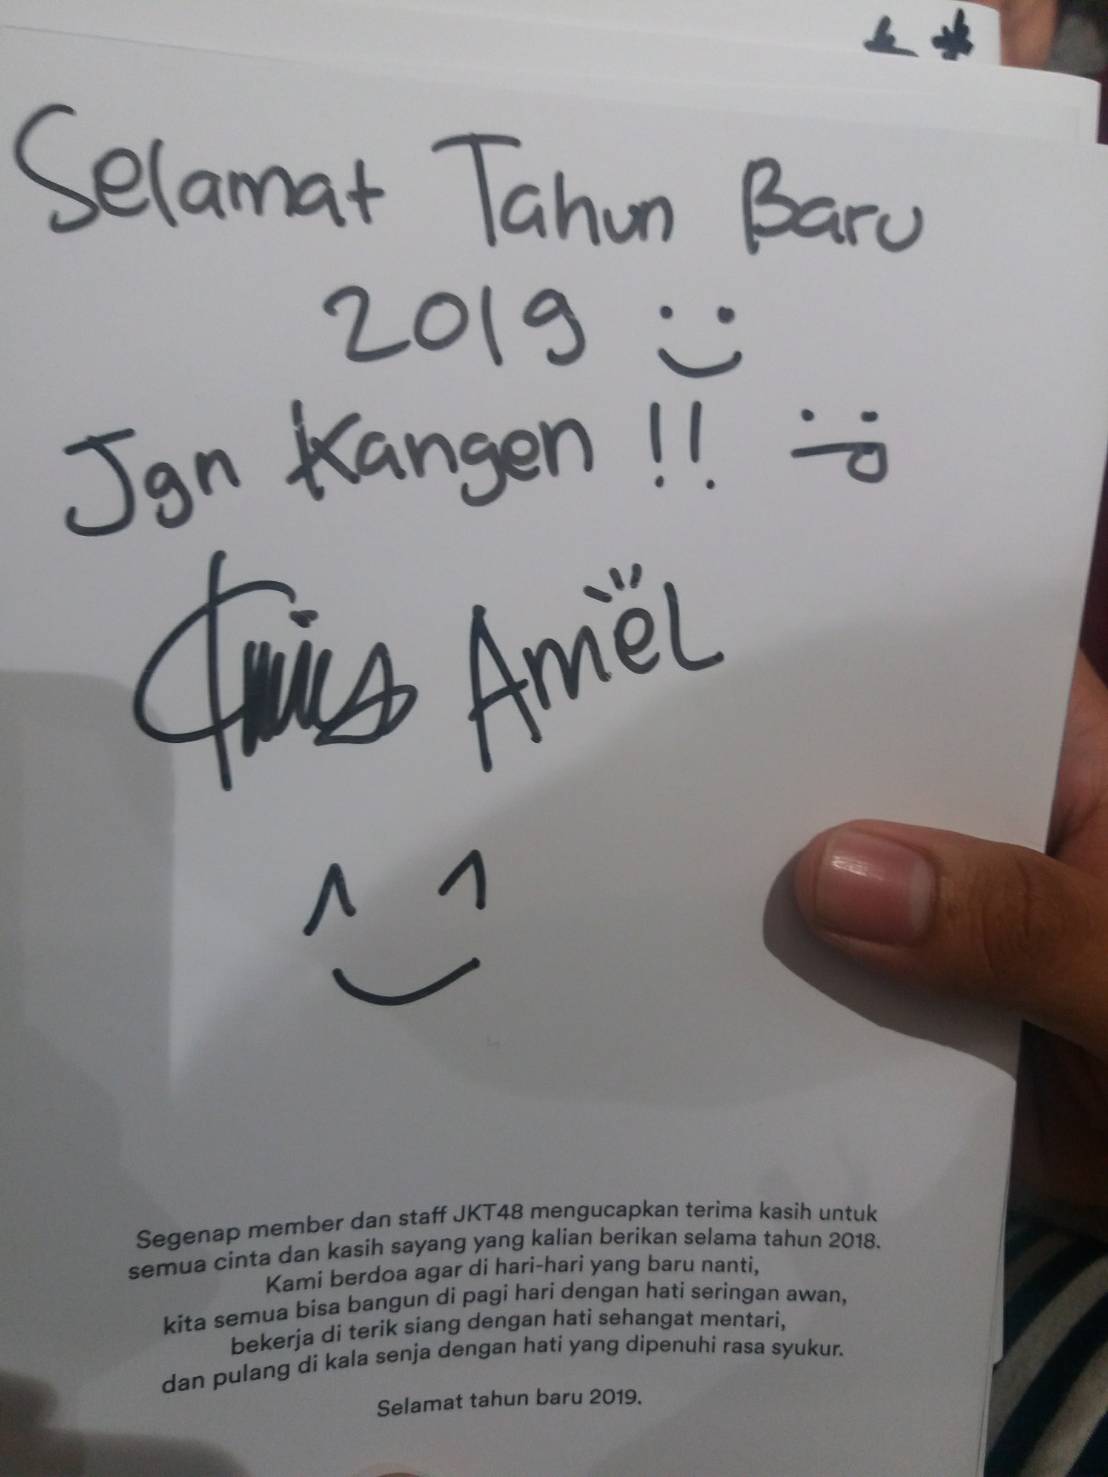 Selamat Tahun Baru
2019 :)
Jgn Kangen !! :P
Amel
Segenap member dan staff JKT48 mengucapkan terima kasih untuk
semua cinta dan kasih sayang yang kalian berikan selama tahun 2018.
Kami berdoa agar di hari-hari yang baru nanti,
kita semua bisa bangun di pagi hari dengan hati seringan awan,
bekerja di terik siang dengan hati sehangat mentari,
dan pulang di kala senja dengan hati yang dipenuhi rasa syukur.
Selamat tahun baru 2019.